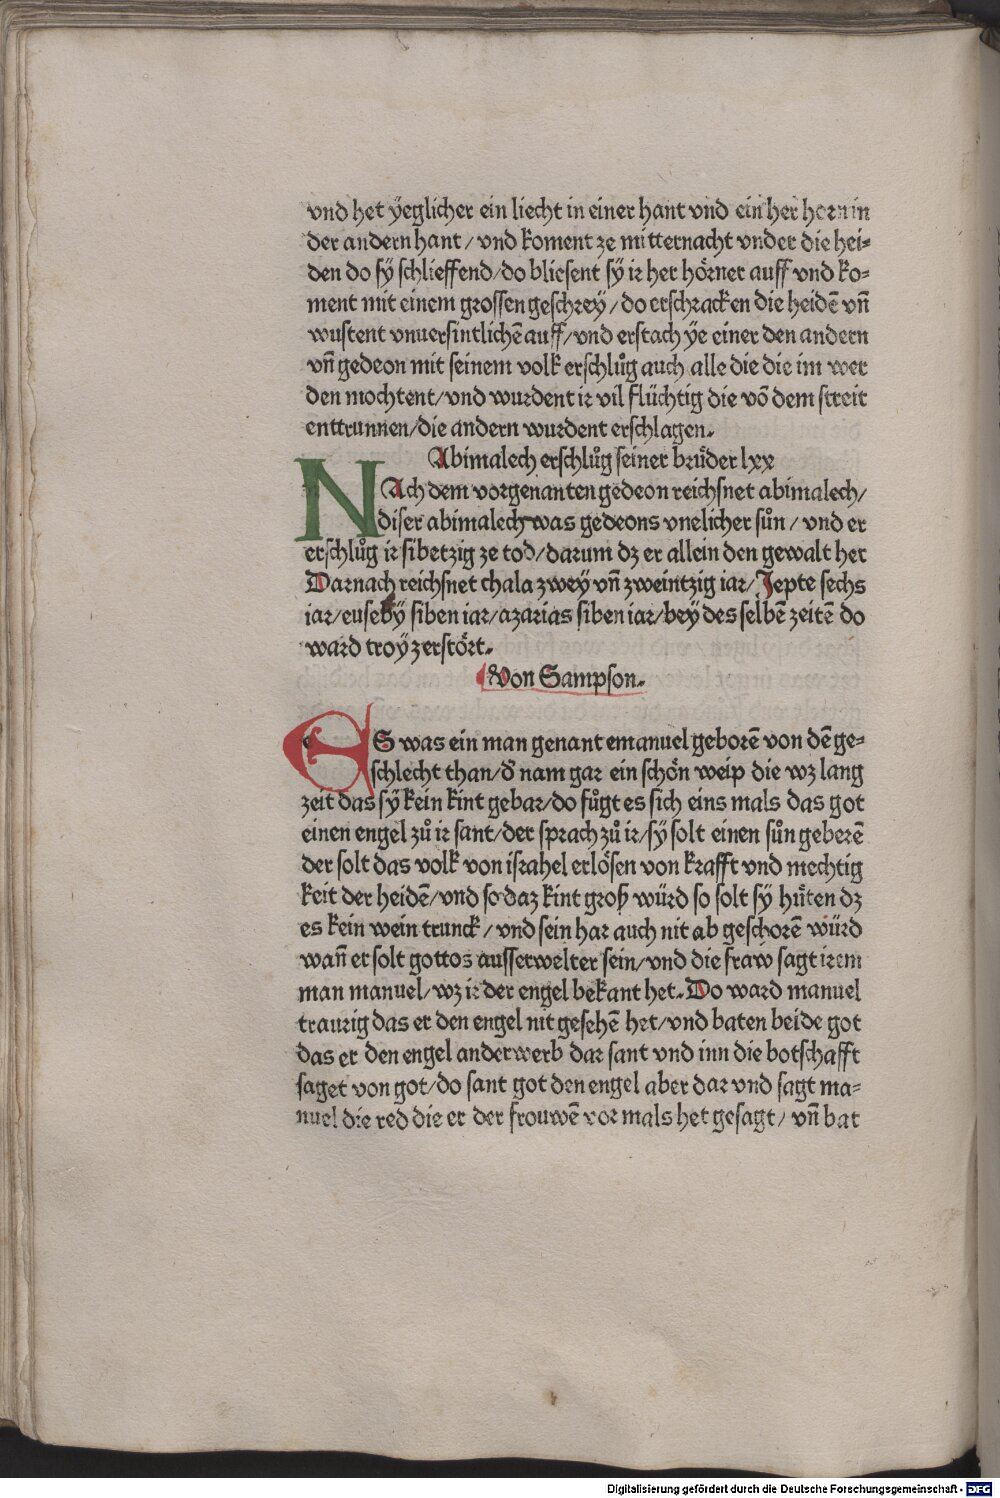 vnd het ÿeglicher ein liecht in einer hant vnd ein her horn in
der andern hant / vnd koment ze mitternacht vnder die hei⸗
den do sÿ schlieffend/do bliesent sÿ ir her hörner auff vnd ko⸗
ment mit einem grossen geschrey / do erschracken die heidē vn̄
wustent vnuersintlichē auff/vnd erstach ÿe einer den andern
vn̄ gedeon mit seinem volk erschlůg auch alle die die im wer
den mochtent/vnd wurdent ir vil flüchtig die vō dem streit
enttrunnen/die andern wurdent erschlagen.
Abimalech erschlůg seiner brüder lxx
NAch dem vorgenanten gedeon reichsnet abimalech/
diser abimalech was gedeons vnelicher sůn / vnd er
erschlůg ir sibetzig ze tod/darum dz er allein den gewalt het
Darnach reichsnet thala zwey vn̄ zweintzig iar/Jepte sechs
iar/euseby siben iar/azarias siben iar/bey des selbē zeitē do
ward troy zerstört.
Von Sampson.
ES was ein man genant emanuel geborē von dē ge⸗
schlecht than/d̄ nam gar ein schön weip die wz lang
zeit das sÿ kein kint gebar/do fůgt es sich eins mals das got
einen engel zů ir sant/der sprach zů ir/sÿ solt einen sůn geberē
der solt das volk von israhel erlösen von krafft vnd mechtig
keit der heidē/vnd so daz kint groß würd so solt sÿ hüten dz
es kein wein trunck / vnd sein har auch nit ab geschorē würd
wan̄ er solt gottos ausserwelter sein/vnd die fraw sagt irem
man manuel/wz ir der engel bekant het. Do ward manuel
traurig das er den engel nit gesehē het/vnd baten beide got
das er den engel anderwerb dar sant vnd inn die botschafft
saget von got/do sant got den engel aber dar vnd sagt ma⸗
nuel die red die er der frouwē vor mals het gesagt / vn̄ bat
Digitalisierung gefördert durch die Deutsche Forschungsgemeinschaft - DFG